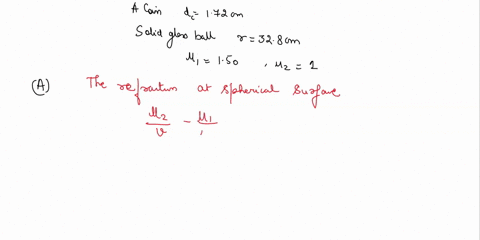 A Coin d_c = 1.72 cm
Solid glass ball r = 32.8 cm
μ_1 = 1.50 , μ_2 = 1
(A) The refraction at spherical surface
μ_2/v - μ_1/